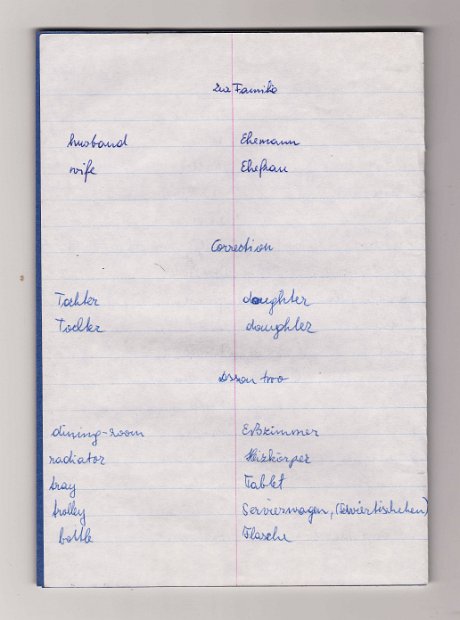 Familie
husband Ehemann
wife Ehefrau
Correction
Tochter daughter
Tochter daughter
Lesson two
dining-room Eßzimmer
radiator Heizkörper
tray Tablet
trolley Servierwagen, (Serviertischchen)
bottle Flasche